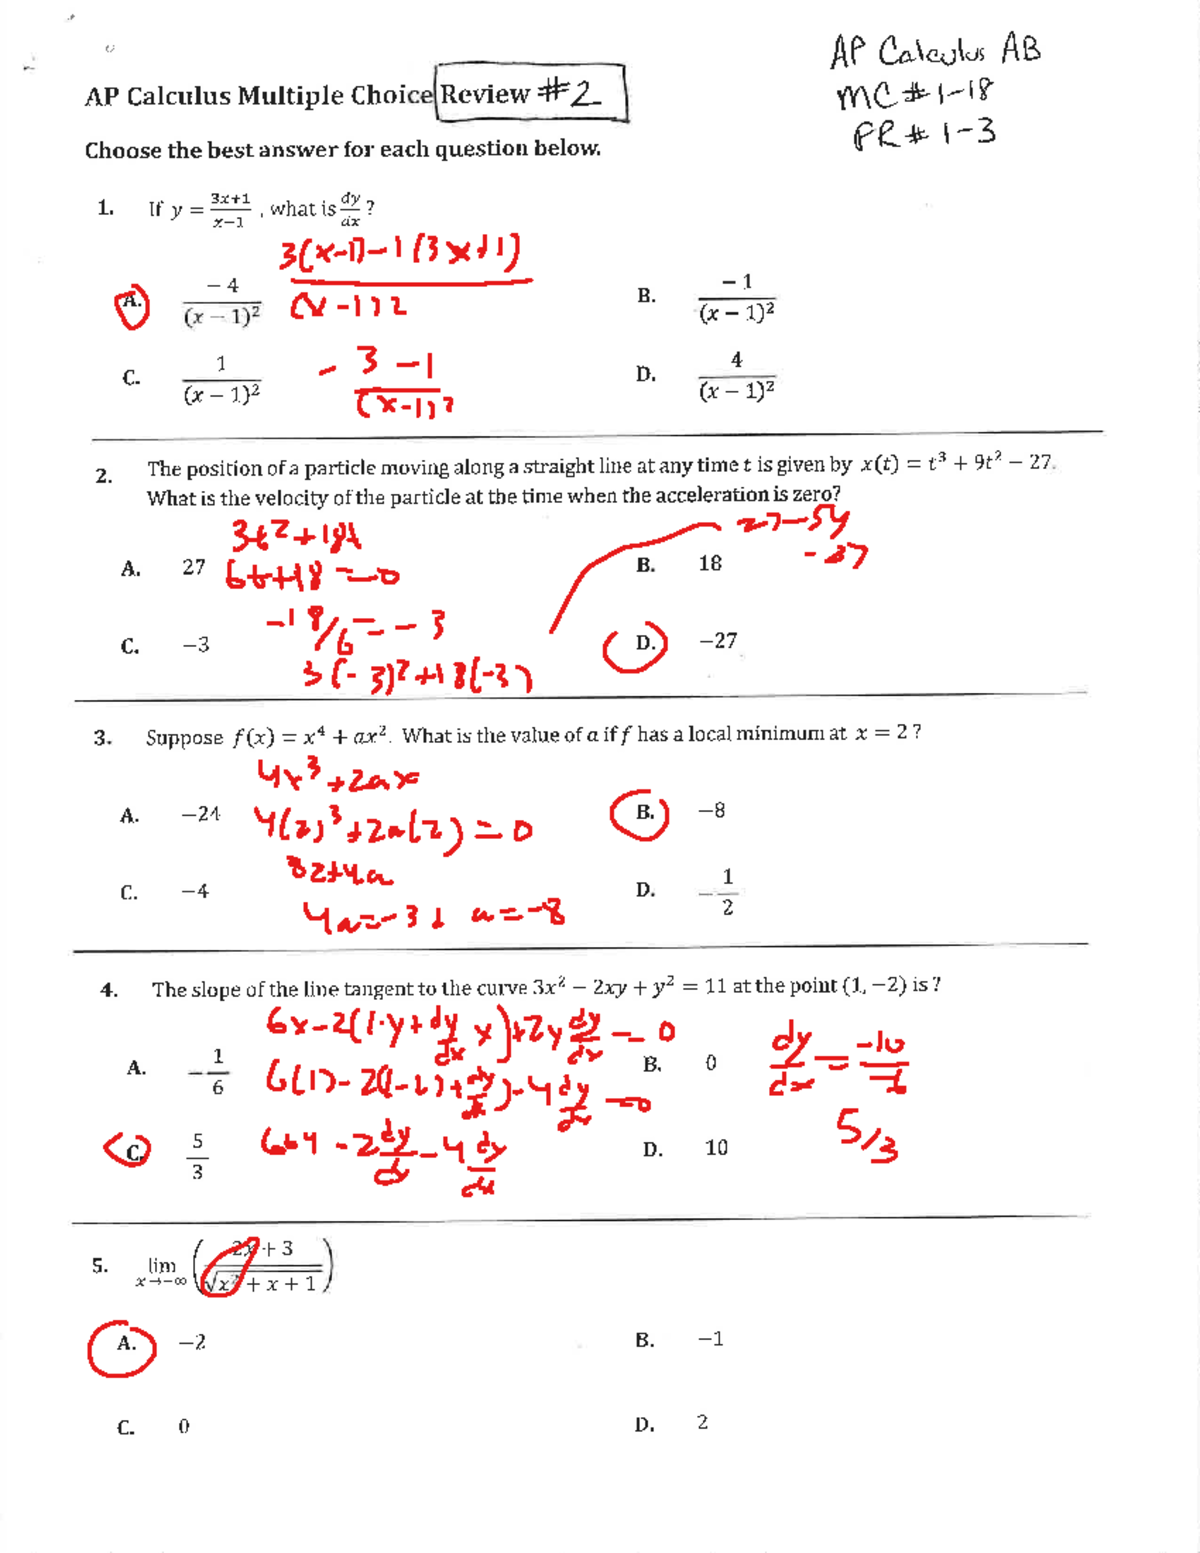 AP Calculus AB
MC # 1-18
FR # 1-3
AP Calculus Multiple Choice Review #2
Choose the best answer for each question below.
1. If y = (3x+1)/(x−1), what is dy/dx?
3(x-1)-1(3x+1)
(x-1)2
A. −4/(x − 1)²
B. −1/(x − 1)²
-3-1
(x-1)2
C. 1/(x − 1)²
D. 4/(x − 1)²
2. The position of a particle moving along a straight line at any time t is given by x(t) = t³ + 9t² − 27.
What is the velocity of the particle at the time when the acceleration is zero?
3t2+18t
27-54
-27
A. 27
6t+18=0
B. 18
-18/6=-3
C. −3
D. −27
3(-3)2+18(-3)
3. Suppose f(x) = x⁴ + ax². What is the value of a if f has a local minimum at x = 2?
4x3+2ax
A. −24
4(2)3+2a(2)=0
B. −8
32+4a
C. −4
D. −1/2
4a=-32 a=-8
4. The slope of the line tangent to the curve 3x² − 2xy + y² = 11 at the point (1, −2) is?
6x-2(1·y+dy/dx x)+2y dy/dx=0
A. −1/6
6(1)-2(-2)+dy/dx)-4dy/dx=0
B. 0
dy/dx=-10/-6
C. 5/3
6+4-2dy/dx-4dy/dx
D. 10
5/3
5. lim x→−∞ ((2x + 3)/√(x² + x + 1))
A. −2
B. −1
C. 0
D. 2